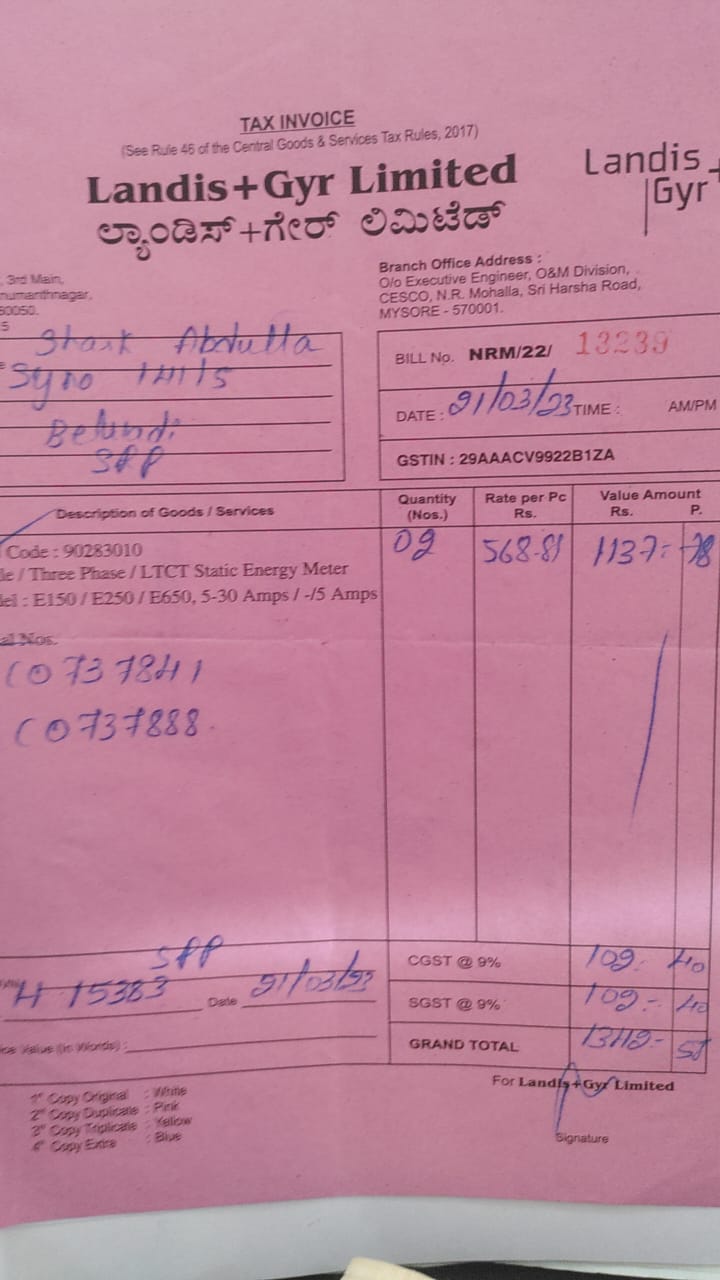 TAX INVOICE
(See Rule 46 of the Central Goods & Services Tax Rules, 2017)
Landis+Gyr Limited
ಲ್ಯಾಂಡಿಸ್+ಗೇರ್ ಲಿಮಿಟೆಡ್
Landis+
Gyr
, 3rd Main,
numanthnagar,
60050.
5
Branch Office Address :
O/o Executive Engineer, O&M Division,
CESCO, N.R. Mohalla, Sri Harsha Road,
MYSORE - 570001.
Abdulla
Syno 141/5
SPP
BILL No. NRM/22/ 13239
DATE : 21/03/23 TIME : AM/PM
GSTIN : 29AAACV9922B1ZA
Description of Goods / Services
Quantity (Nos.)
Rate per Pc Rs.
Value Amount
Rs. P.
Code : 90283010
le / Three Phase / LTCT Static Energy Meter
del : E150 / E250 / E650, 5-30 Amps / -/5 Amps
02 568-81 1137=
al Nos.
C0737841
C0737888
SPP
15383 Date 21/03/23
ice Value (in Words) :
CGST @ 9% 109- 40
SGST @ 9% 109- 40
GRAND TOTAL
1st Copy Original : White
2nd Copy Duplicate : Pink
3rd Copy Triplicate : Yellow
4th Copy Extra : Blue
For Landis+Gyr Limited
Signature